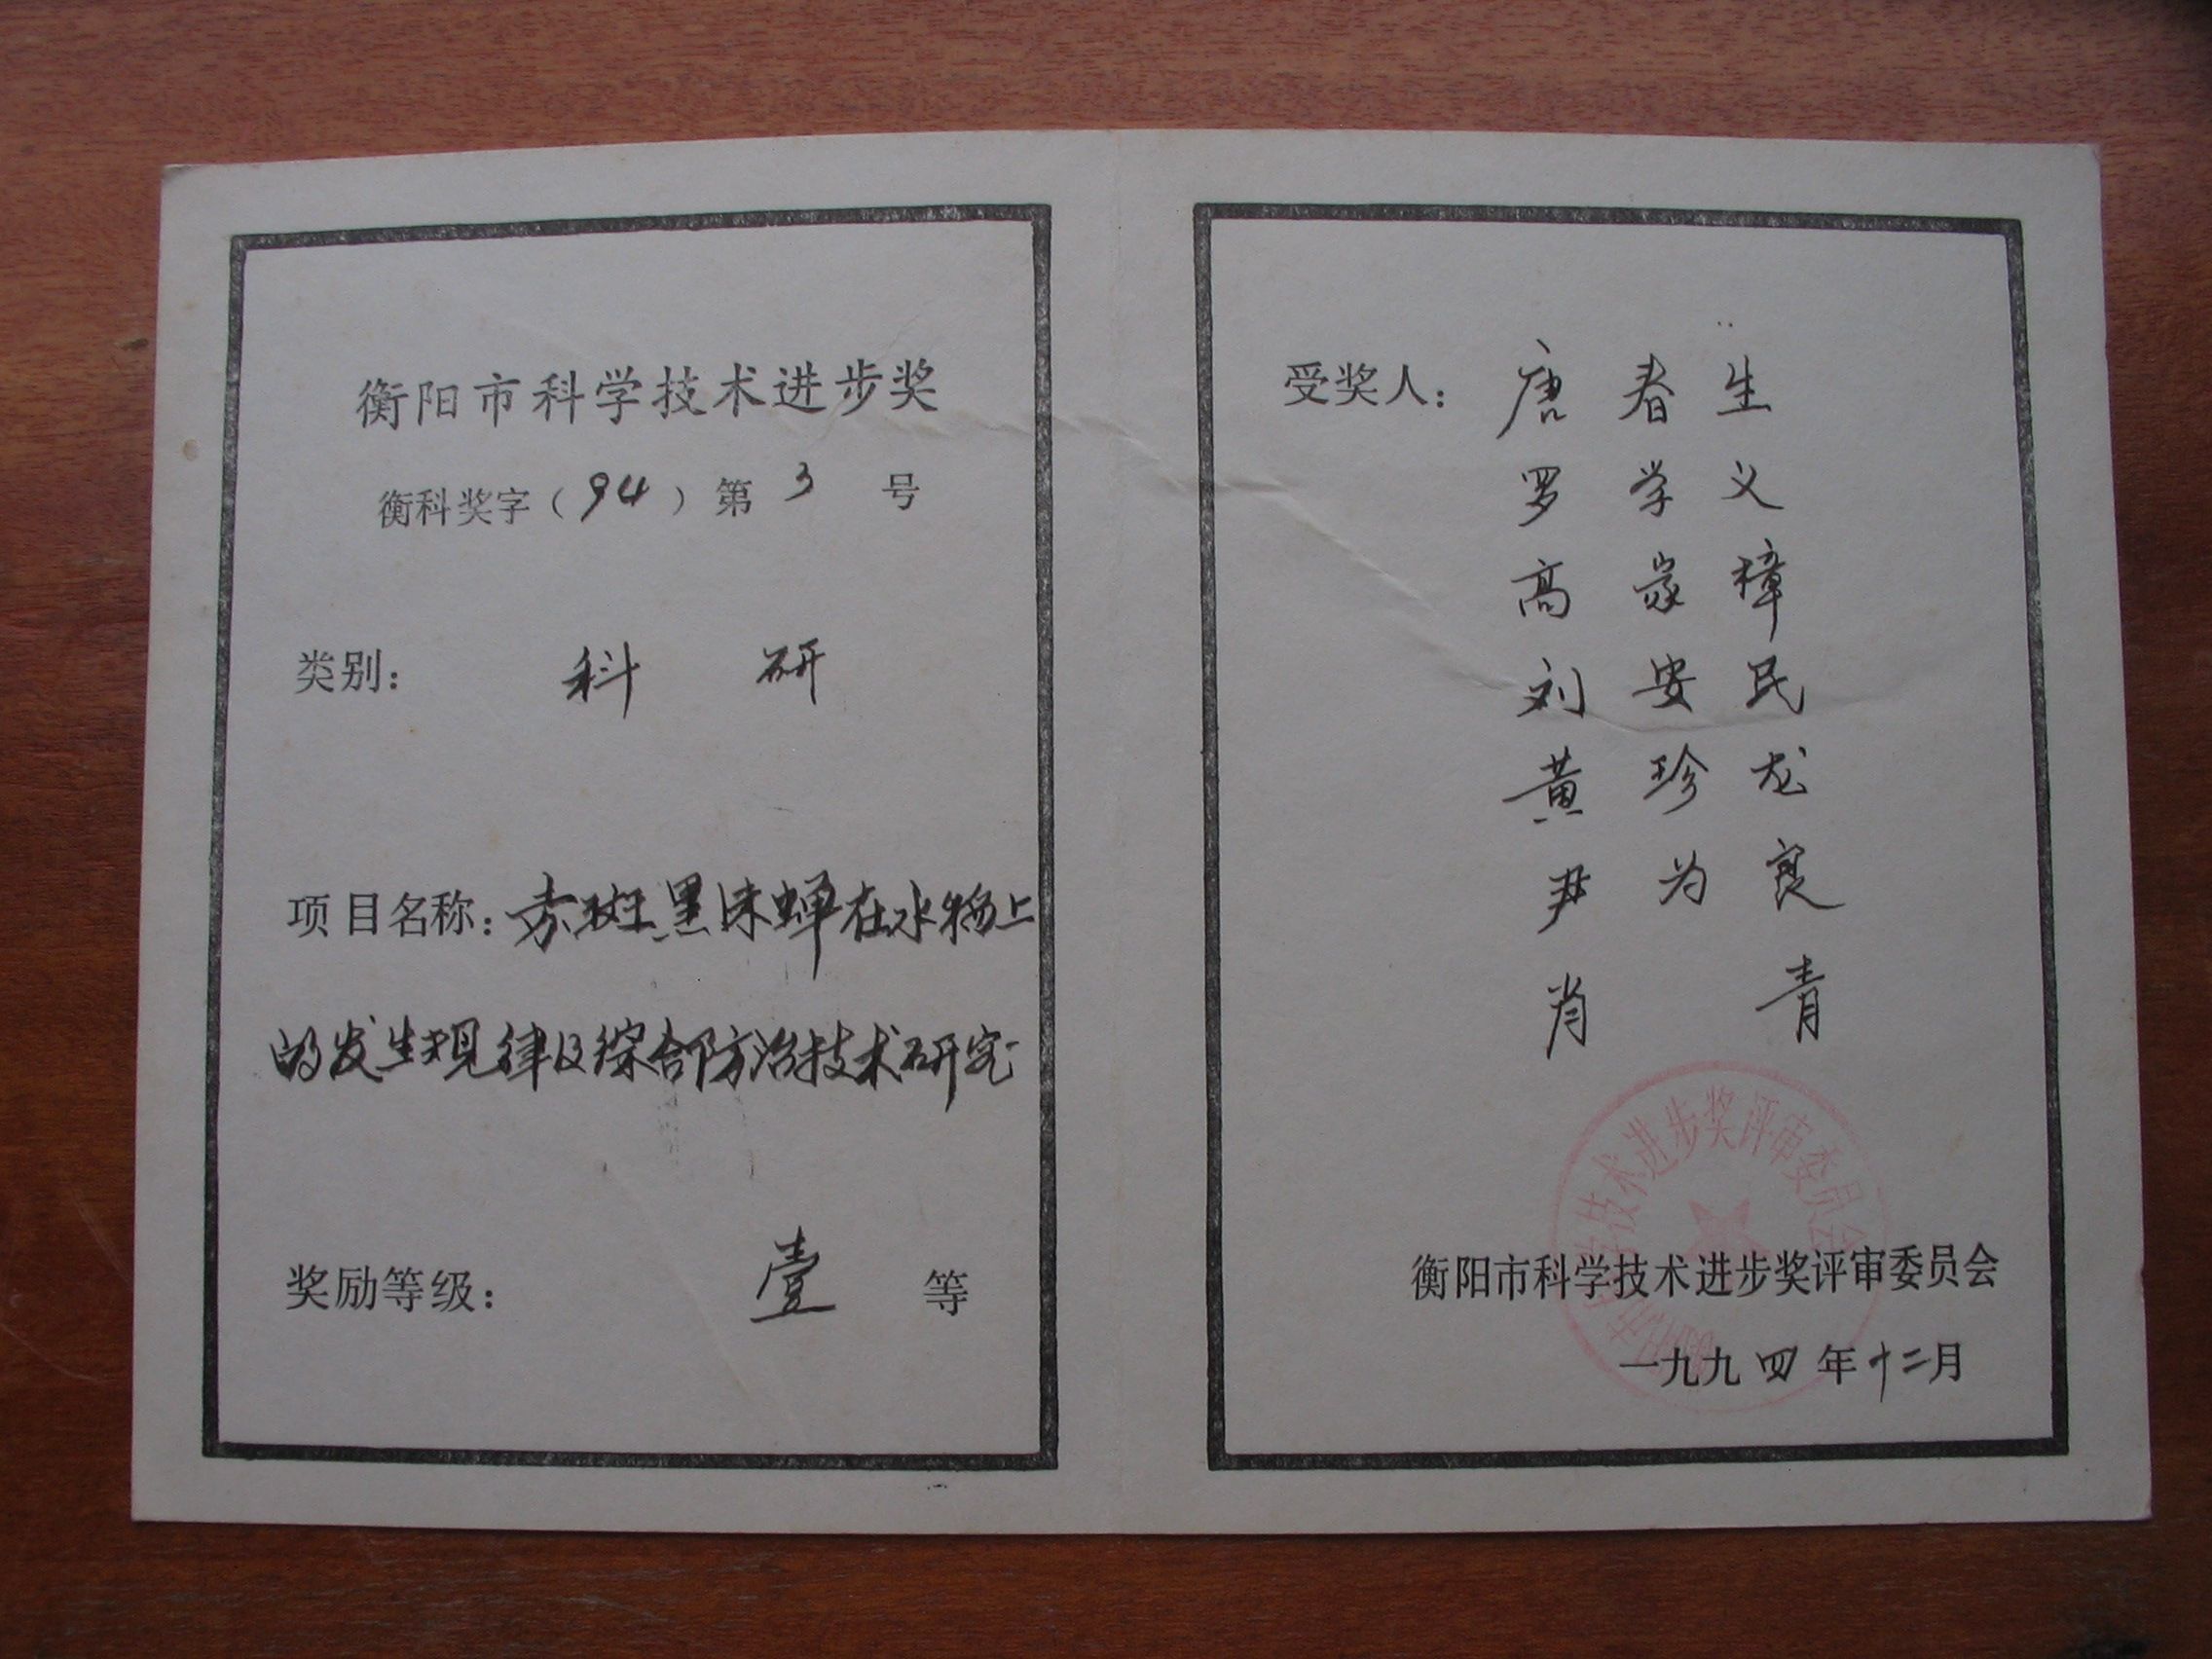 衡阳市科学技术进步奖
衡科奖字（94）第 3 号
类别： 科 研
项目名称：赤斑黑沫蝉在水稻上
的发生规律及综合防治技术研究
奖励等级： 壹 等
受奖人： 唐春生
罗学义
高家樟
刘安民
黄珍龙
尹为良
肖 青
衡阳市科学技术进步奖评审委员会
衡阳市科学技术进步奖评审委员会
一九九四年十二月